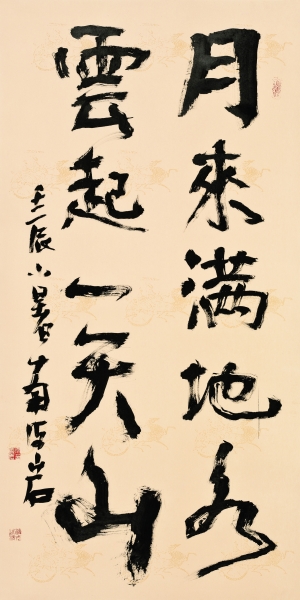 月來滿地水
雲起一天山
壬辰小暑
山岩